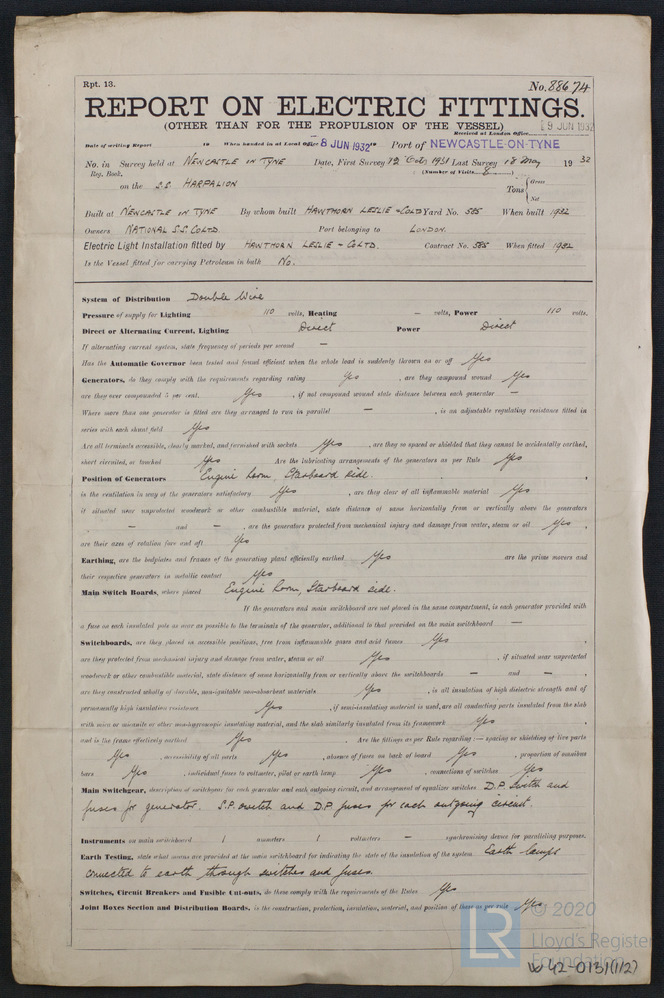 Rpt. 13.
No. 88674
REPORT ON ELECTRIC FITTINGS.
(OTHER THAN FOR THE PROPULSION OF THE VESSEL)
Received at London Office 9 JUN 1932
Date of writing Report 19 When handed in at Local Office 8 JUN 1932 Port of NEWCASTLE-ON-TYNE
No. in Survey held at NEWCASTLE ON TYNE Date, First Survey 12 Oct 1931 Last Survey 18 May 1932
Reg. Book. (Number of Visits 8)
on the S.S. HARPALION Tons { Gross
Net
Built at NEWCASTLE ON TYNE By whom built HAWTHORN LESLIE & CO LTD Yard No. 585 When built 1932
Owners NATIONAL S.S. CO LTD. Port belonging to LONDON.
Electric Light Installation fitted by HAWTHORN LESLIE & CO LTD. Contract No. 585 When fitted 1932
Is the Vessel fitted for carrying Petroleum in bulk No.
System of Distribution Double Wire
Pressure of supply for Lighting 110 volts, Heating – volts, Power 110 volts.
Direct or Alternating Current, Lighting Direct Power Direct
If alternating current system, state frequency of periods per second –
Has the Automatic Governor been tested and found efficient when the whole load is suddenly thrown on or off Yes
Generators, do they comply with the requirements regarding rating Yes , are they compound wound Yes
are they over compounded 5 per cent. Yes , if not compound wound state distance between each generator –
Where more than one generator is fitted are they arranged to run in parallel – , is an adjustable regulating resistance fitted in
series with each shunt field Yes
Are all terminals accessible, clearly marked, and furnished with sockets Yes , are they so spaced or shielded that they cannot be accidentally earthed,
short circuited, or touched Yes Are the lubricating arrangements of the generators as per Rule Yes
Position of Generators Engine Room, Starboard side.
is the ventilation in way of the generators satisfactory Yes , are they clear of all inflammable material Yes
if situated near unprotected woodwork or other combustible material, state distance of same horizontally from or vertically above the generators
– and – , are the generators protected from mechanical injury and damage from water, steam or oil Yes ,
are their axes of rotation fore and aft Yes
Earthing, are the bedplates and frames of the generating plant efficiently earthed Yes are the prime movers and
their respective generators in metallic contact Yes
Main Switch Boards, where placed Engine Room, Starboard side.
If the generators and main switchboard are not placed in the same compartment, is each generator provided with
a fuse on each insulated pole as near as possible to the terminals of the generator, additional to that provided on the main switchboard –
Switchboards, are they placed in accessible positions, free from inflammable gases and acid fumes Yes ,
are they protected from mechanical injury and damage from water, steam or oil Yes , if situated near unprotected
woodwork or other combustible material, state distance of same horizontally from or vertically above the switchboards – and – ,
are they constructed wholly of durable, non-ignitable non-absorbent materials Yes , is all insulation of high dielectric strength and of
permanently high insulation resistance Yes , if semi-insulating material is used, are all conducting parts insulated from the slab
with mica or micanite or other non-hygroscopic insulating material, and the slab similarly insulated from its framework Yes ,
and is the frame effectively earthed Yes . Are the fittings as per Rule regarding:— spacing or shielding of live parts
Yes , accessibility of all parts Yes , absence of fuses on back of board Yes , proportion of omnibus
bars Yes , individual fuses to voltmeter, pilot or earth lamp Yes , connections of switches Yes
Main Switchgear, description of switchgear for each generator and each outgoing circuit, and arrangement of equalizer switches D.P. switch and
fuses for generator. S.P. switch and D.P. fuses for each outgoing circuit.
Instruments on main switchboard 1 ammeters 1 voltmeters – synchronising device for paralleling purposes.
Earth Testing, state what means are provided at the main switchboard for indicating the state of the insulation of the system Earth lamps
connected to earth through switches and fuses.
Switches, Circuit Breakers and Fusible Cut-outs, do these comply with the requirements of the Rules Yes
Joint Boxes Section and Distribution Boards, is the construction, protection, insulation, material, and position of these as per rule Yes
© 2020
LR
Lloyd's Register
Foundation
W42-0131(1/2)